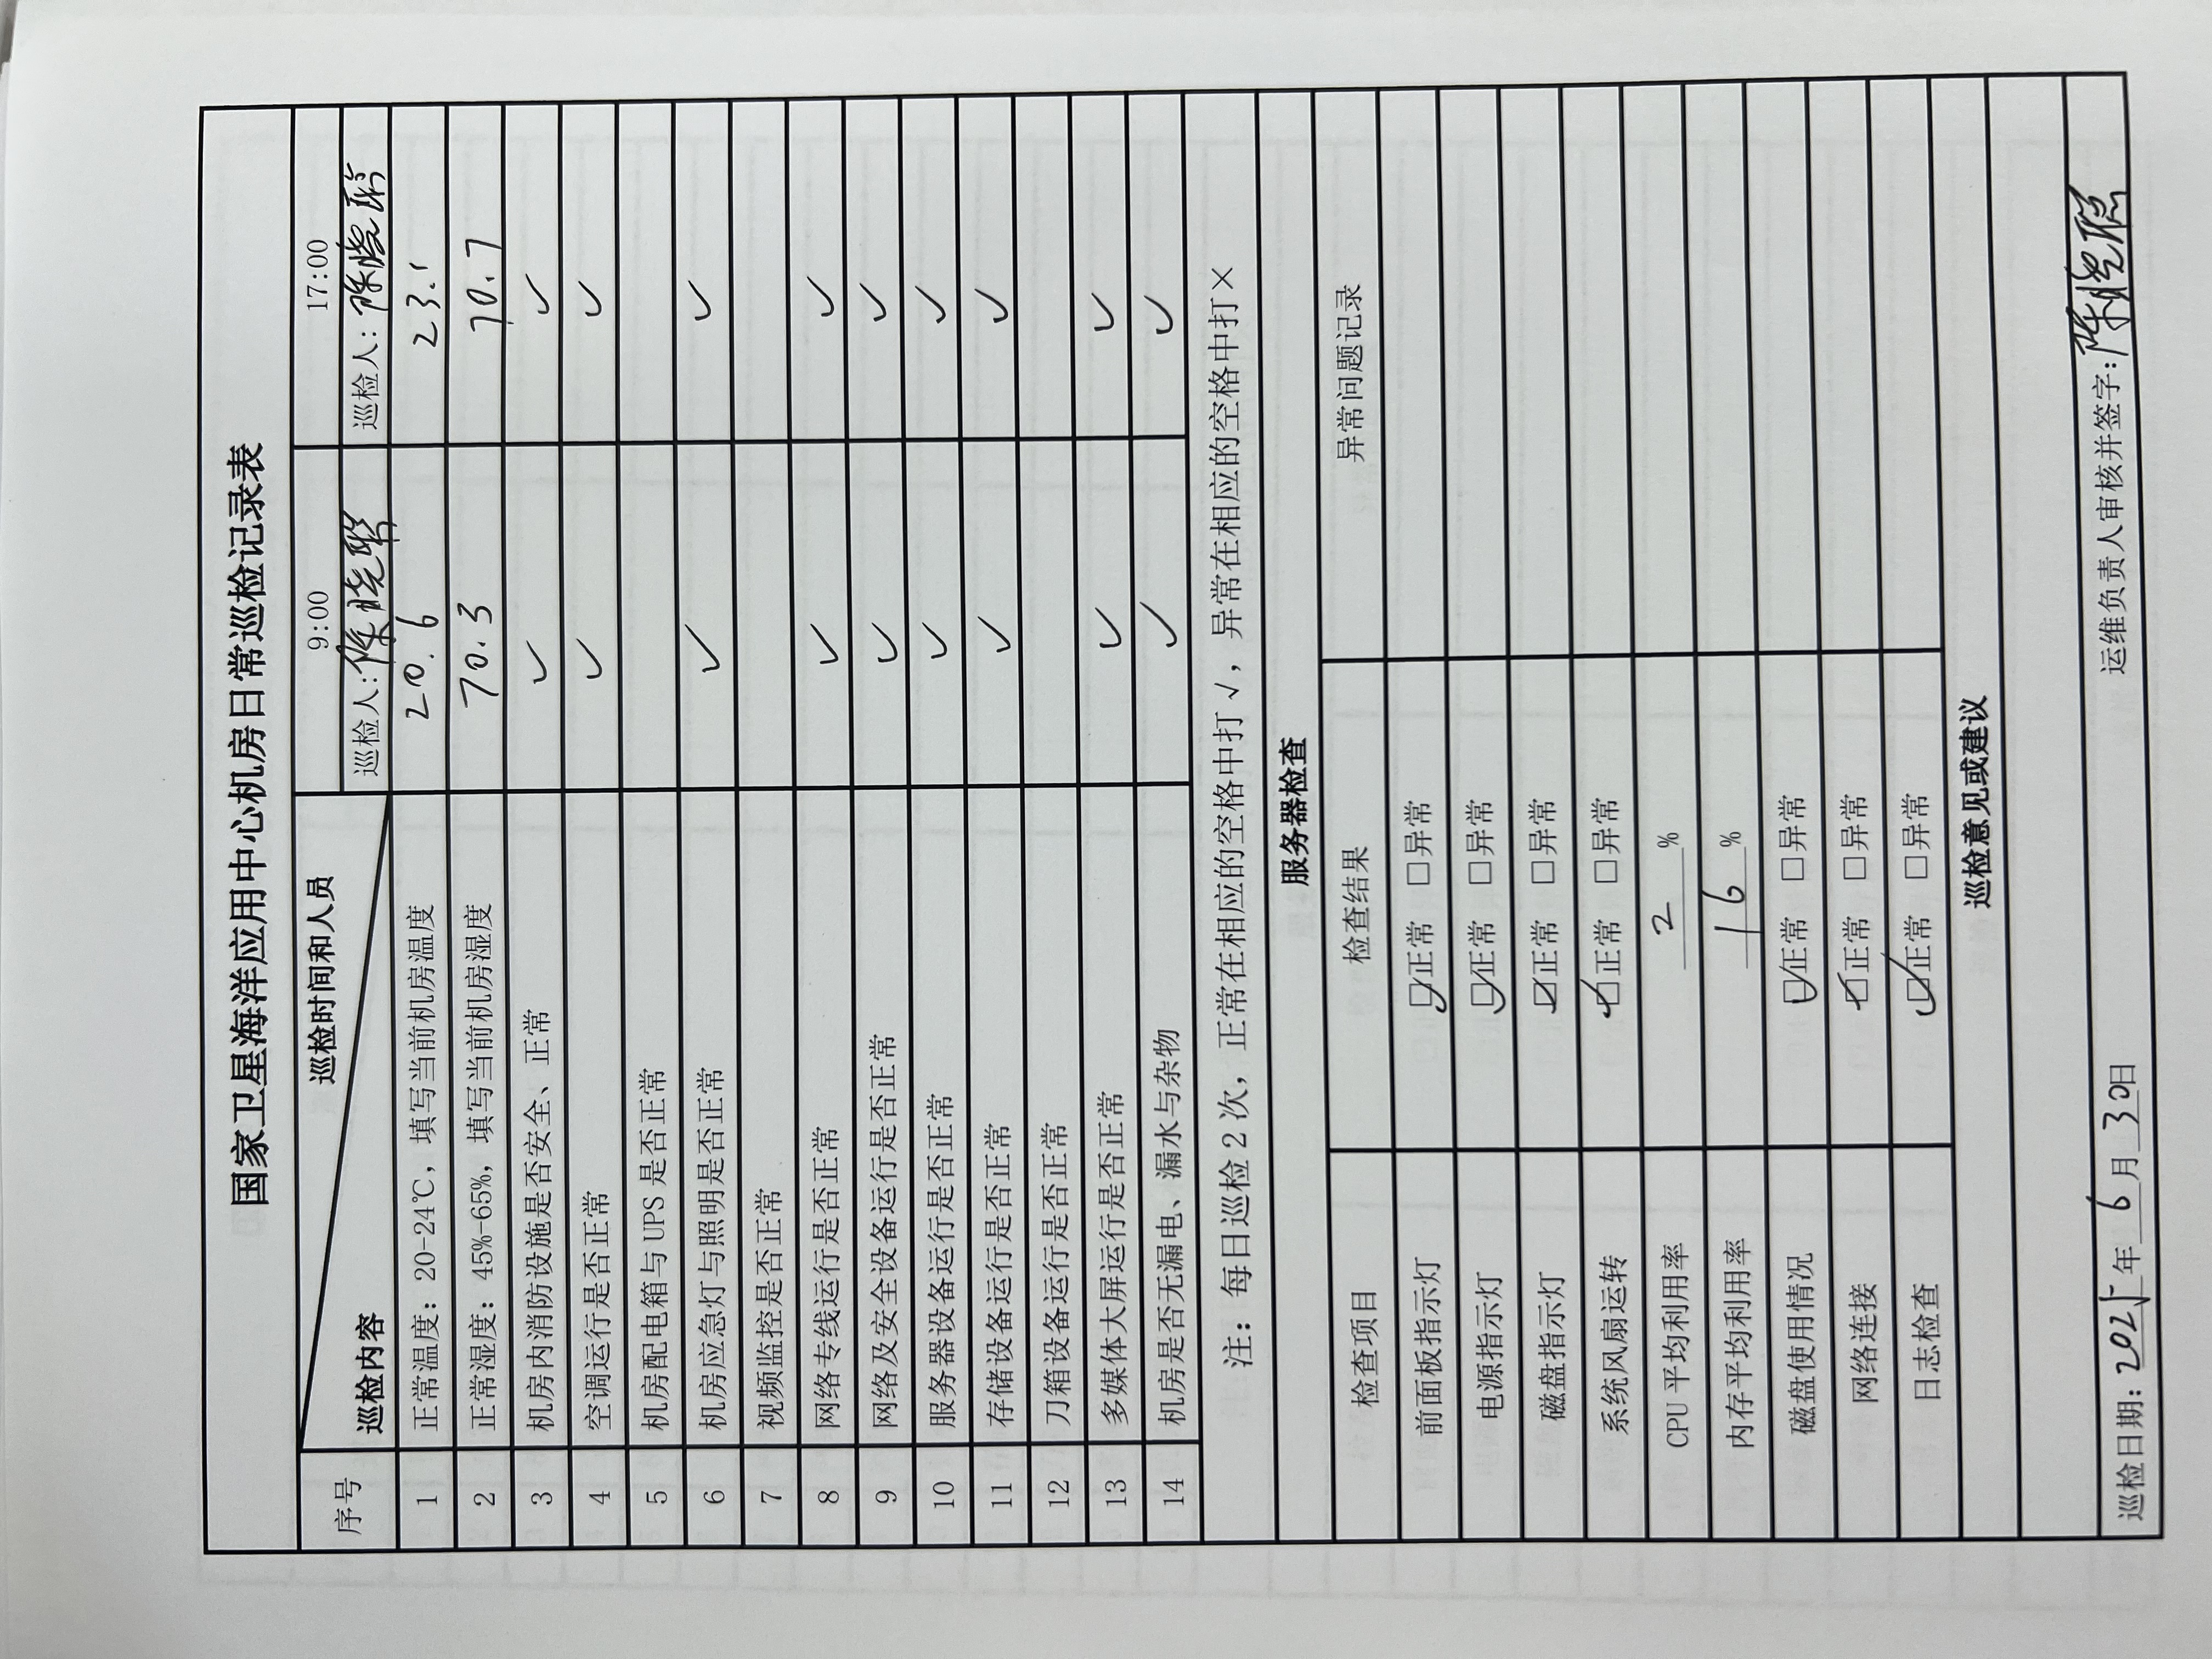 国家卫星海洋应用中心机房日常巡检记录表
序号 巡检内容 巡检时间和人员 9:00 17:00
巡检人: 巡检人:
1 正常温度: 20-24℃, 填写当前机房温度 20.6 23.1
2 正常湿度: 45%-65%, 填写当前机房湿度 70.3 70.7
3 机房内消防设施是否安全、正常 ✓ ✓
4 空调运行是否正常 ✓ ✓
5 机房配电箱与 UPS 是否正常
6 机房应急灯与照明是否正常 ✓ ✓
7 视频监控是否正常
8 网络专线运行是否正常 ✓ ✓
9 网络及安全设备运行是否正常 ✓ ✓
10 服务器设备运行是否正常 ✓ ✓
11 存储设备运行是否正常 ✓ ✓
12 刀箱设备运行是否正常
13 多媒体大屏运行是否正常 ✓ ✓
14 机房是否无漏电、漏水与杂物 ✓ ✓
注: 每日巡检 2 次, 正常在相应的空格中打 √, 异常在相应的空格中打×
服务器检查
检查项目 检查结果 异常问题记录
前面板指示灯 ☑正常 □异常
电源指示灯 ☑正常 □异常
磁盘指示灯 ☑正常 □异常
系统风扇运转 ☑正常 □异常
CPU 平均利用率 2 %
内存平均利用率 16 %
磁盘使用情况 ☑正常 □异常
网络连接 ☑正常 □异常
日志检查 ☑正常 □异常
巡检意见或建议
巡检日期: 2025年 6 月 30日 运维负责人审核并签字: